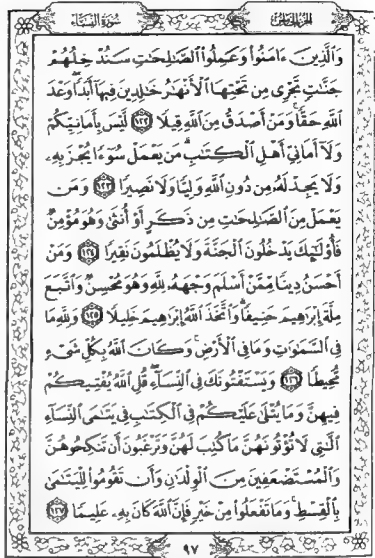 الجزء الخامس سورة النساء
وَالَّذِينَ ءَامَنُوا۟ وَعَمِلُوا۟ الصَّٰلِحَٰتِ سَنُدْخِلُهُمْ
جَنَّٰتٍ تَجْرِى مِن تَحْتِهَا الْأَنْهَٰرُ خَٰلِدِينَ فِيهَآ أَبَدًا ۖ وَعْدَ
اللَّهِ حَقًّا ۚ وَمَنْ أَصْدَقُ مِنَ اللَّهِ قِيلًا ١٢٢ لَّيْسَ بِأَمَانِيِّكُمْ
وَلَآ أَمَانِىِّ أَهْلِ الْكِتَٰبِ ۗ مَن يَعْمَلْ سُوٓءًا يُجْزَ بِهِۦ
وَلَا يَجِدْ لَهُۥ مِن دُونِ اللَّهِ وَلِيًّا وَلَا نَصِيرًا ١٢٣ وَمَن
يَعْمَلْ مِنَ الصَّٰلِحَٰتِ مِن ذَكَرٍ أَوْ أُنثَىٰ وَهُوَ مُؤْمِنٌ
فَأُو۟لَٰٓئِكَ يَدْخُلُونَ الْجَنَّةَ وَلَا يُظْلَمُونَ نَقِيرًا ١٢٤ وَمَنْ
أَحْسَنُ دِينًا مِّمَّنْ أَسْلَمَ وَجْهَهُۥ لِلَّهِ وَهُوَ مُحْسِنٌ وَاتَّبَعَ
مِلَّةَ إِبْرَٰهِيمَ حَنِيفًا ۗ وَاتَّخَذَ اللَّهُ إِبْرَٰهِيمَ خَلِيلًا ١٢٥ وَلِلَّهِ مَا
فِى السَّمَٰوَٰتِ وَمَا فِى الْأَرْضِ ۚ وَكَانَ اللَّهُ بِكُلِّ شَىْءٍ
مُّحِيطًا ١٢٦ وَيَسْتَفْتُونَكَ فِى النِّسَآءِ ۖ قُلِ اللَّهُ يُفْتِيكُمْ
فِيهِنَّ وَمَا يُتْلَىٰ عَلَيْكُمْ فِى الْكِتَٰبِ فِى يَتَٰمَى النِّسَآءِ
الَّٰتِى لَا تُؤْتُونَهُنَّ مَا كُتِبَ لَهُنَّ وَتَرْغَبُونَ أَن تَنكِحُوهُنَّ
وَالْمُسْتَضْعَفِينَ مِنَ الْوِلْدَٰنِ وَأَن تَقُومُوا۟ لِلْيَتَٰمَىٰ
بِالْقِسْطِ ۚ وَمَا تَفْعَلُوا۟ مِنْ خَيْرٍ فَإِنَّ اللَّهَ كَانَ بِهِۦ عَلِيمًا ١٢٧
٩٧